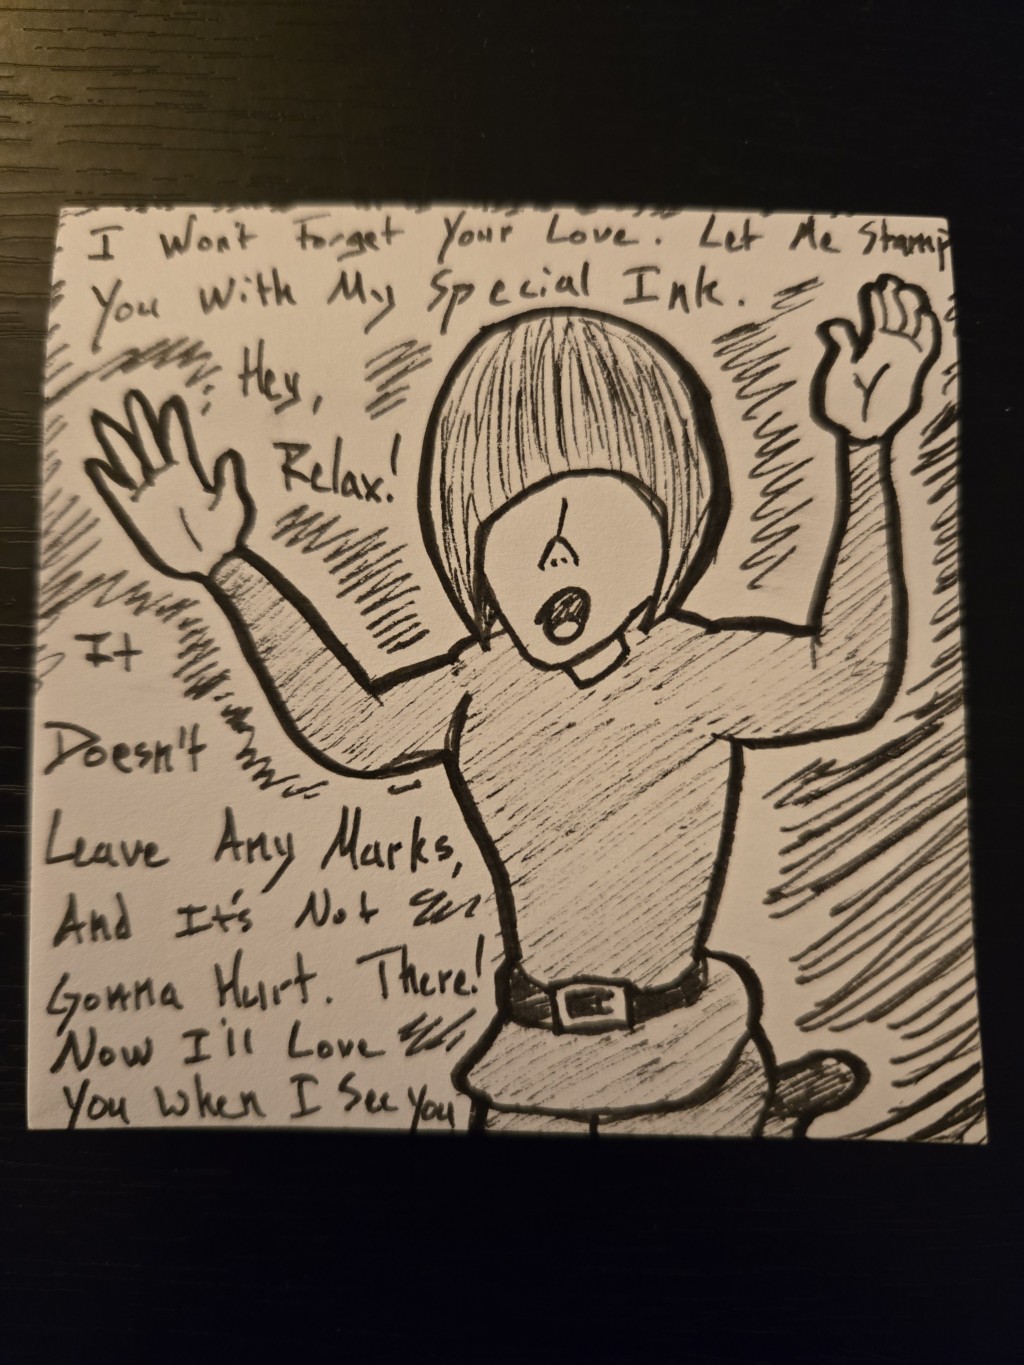 I Won't Forget Your Love. Let Me Stamp
You With My Special Ink.
Hey,
Relax!
It
Doesn't
Leave Any Marks,
And It's Not
Gonna Hurt. There!
Now I'll Love
You When I See You